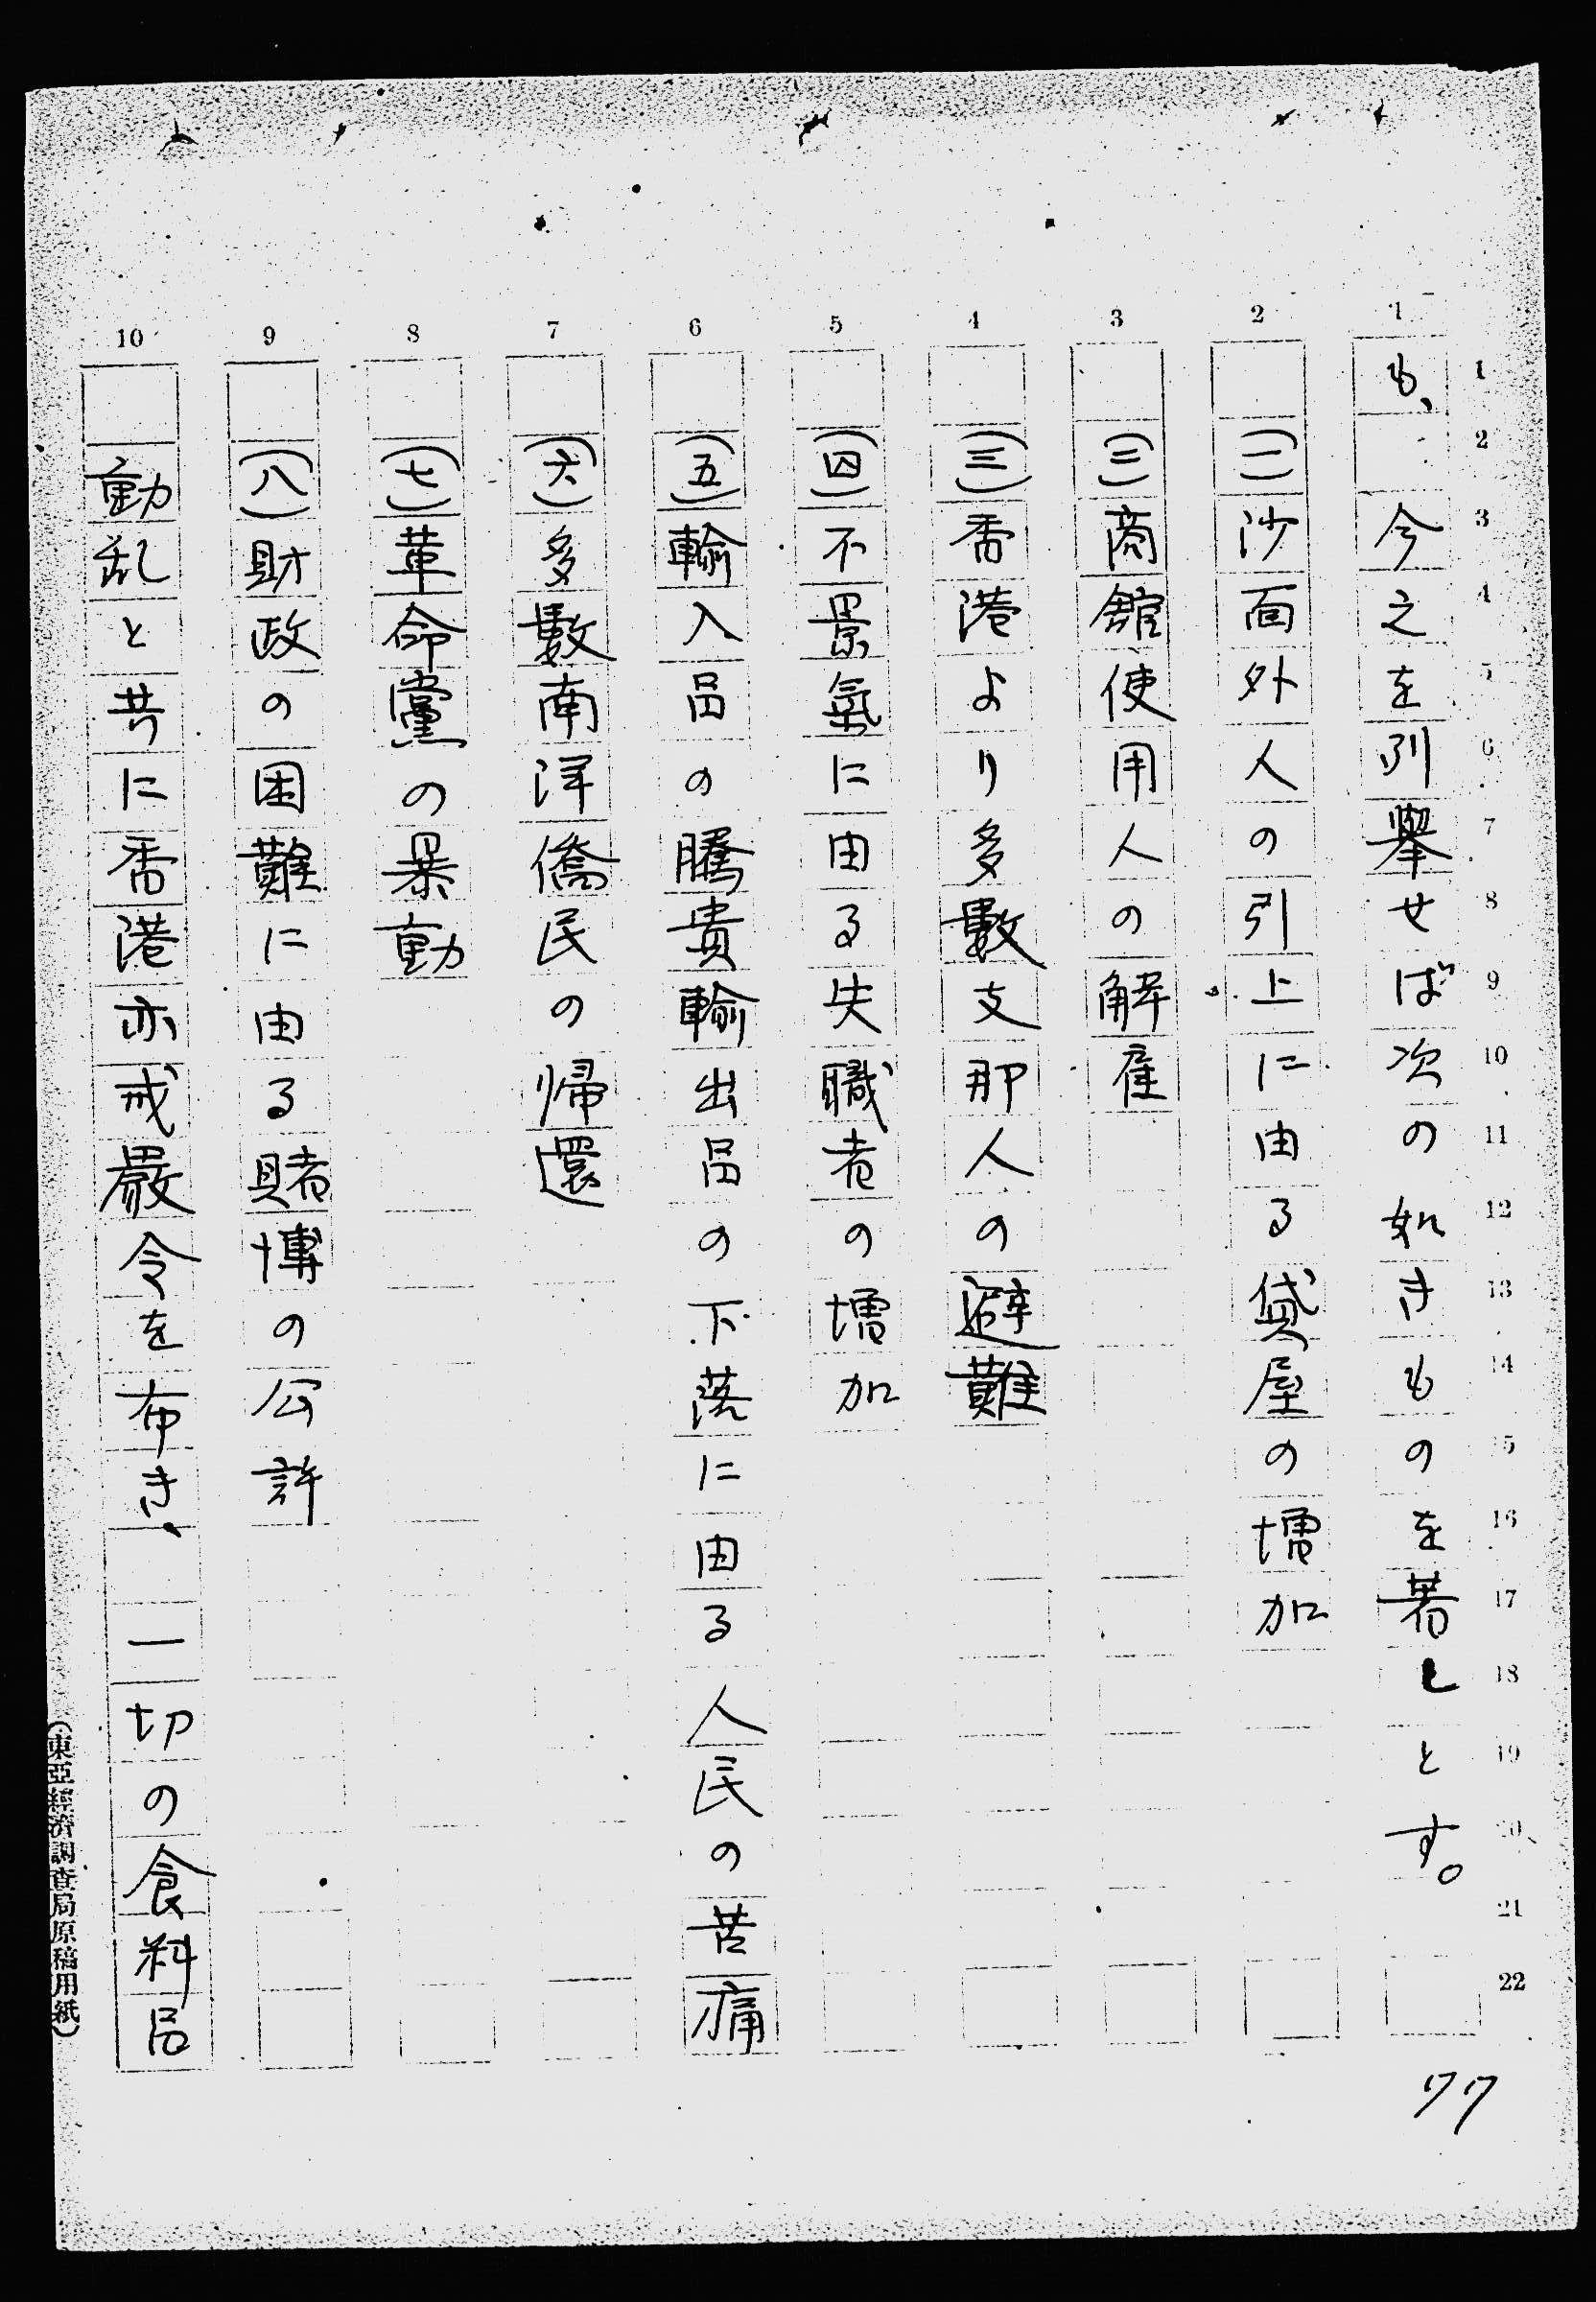 1 2 3 4 5 6 7 8 9 10
1 2 3 4 5 6 7 8 9 10 11 12 13 14 15 16 17 18 19 20 21 22
も、　今之を列擧せば次の如きものを著しとす。
(一)沙面外人の引上に由る貸屋の増加
(二)商館使用人の解雇
(三)香港より多數支那人の避難
(四)不景氣に由る失職者の増加
(五)輸入品の騰貴輸出品の下落に由る人民の苦痛
(六)多數南洋僑民の帰還
(七)革命黨の暴動
(八)財政の困難に由る賭博の公許
動乱と共に香港亦戒嚴令を布き、一切の食料品
(東亞經濟調査局原稿用紙)
77